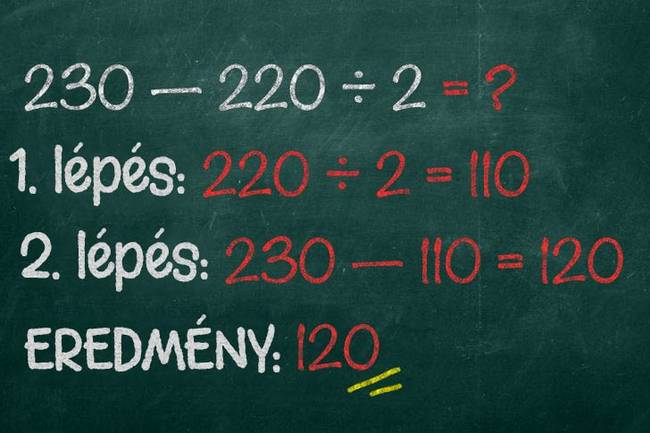 230 — 220 ÷ 2 = ?
1. lépés: 220 ÷ 2 = 110
2. lépés: 230 — 110 = 120
EREDMÉNY: 120